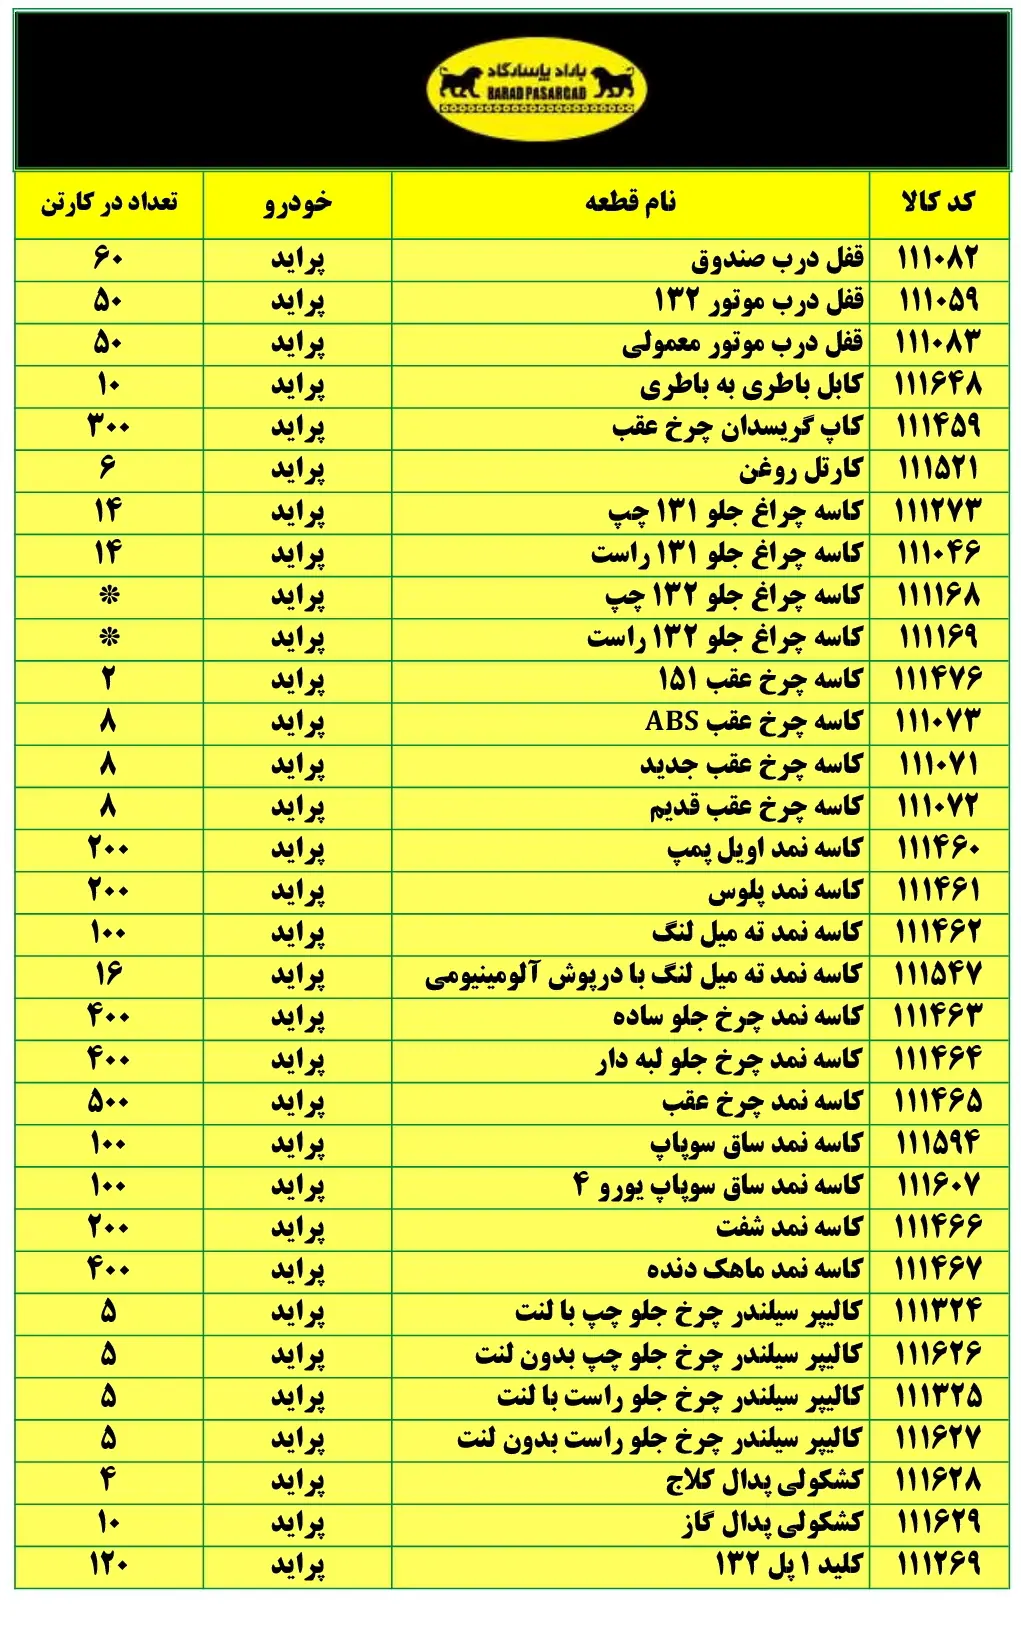 باراد پاسارگاد
BARAD PASARGAD
کد کالا نام قطعه خودرو تعداد در کارتن
۱۱۱۰۸۲ قفل درب صندوق پراید ۶۰
۱۱۱۰۵۹ قفل درب موتور ۱۳۲ پراید ۵۰
۱۱۱۰۸۳ قفل درب موتور معمولی پراید ۵۰
۱۱۱۶۴۸ کابل باطری به باطری پراید ۱۰
۱۱۱۴۵۹ کاپ گریسدان چرخ عقب پراید ۳۰۰
۱۱۱۵۲۱ کارتل روغن پراید ۶
۱۱۱۲۷۳ کاسه چراغ جلو ۱۳۱ چپ پراید ۱۴
۱۱۱۰۴۶ کاسه چراغ جلو ۱۳۱ راست پراید ۱۴
۱۱۱۱۶۸ کاسه چراغ جلو ۱۳۲ چپ پراید *
۱۱۱۱۶۹ کاسه چراغ جلو ۱۳۲ راست پراید *
۱۱۱۴۷۶ کاسه چرخ عقب ۱۵۱ پراید ۲
۱۱۱۰۷۳ کاسه چرخ عقب ABS پراید ۸
۱۱۱۰۷۱ کاسه چرخ عقب جدید پراید ۸
۱۱۱۰۷۲ کاسه چرخ عقب قدیم پراید ۸
۱۱۱۴۶۰ کاسه نمد اویل پمپ پراید ۲۰۰
۱۱۱۴۶۱ کاسه نمد پلوس پراید ۲۰۰
۱۱۱۴۶۲ کاسه نمد ته میل لنگ پراید ۱۰۰
۱۱۱۵۴۷ کاسه نمد ته میل لنگ با درپوش آلومینیومی پراید ۱۶
۱۱۱۴۶۳ کاسه نمد چرخ جلو ساده پراید ۴۰۰
۱۱۱۴۶۴ کاسه نمد چرخ جلو لبه دار پراید ۴۰۰
۱۱۱۴۶۵ کاسه نمد چرخ عقب پراید ۵۰۰
۱۱۱۵۹۴ کاسه نمد ساق سوپاپ پراید ۱۰۰
۱۱۱۶۰۷ کاسه نمد ساق سوپاپ یورو ۴ پراید ۱۰۰
۱۱۱۴۶۶ کاسه نمد شفت پراید ۲۰۰
۱۱۱۴۶۷ کاسه نمد ماهک دنده پراید ۴۰۰
۱۱۱۳۲۴ کالیپر سیلندر چرخ جلو چپ با لنت پراید ۵
۱۱۱۶۲۶ کالیپر سیلندر چرخ جلو چپ بدون لنت پراید ۵
۱۱۱۳۲۵ کالیپر سیلندر چرخ جلو راست با لنت پراید ۵
۱۱۱۶۲۷ کالیپر سیلندر چرخ جلو راست بدون لنت پراید ۵
۱۱۱۶۲۸ کشکولی پدال کلاج پراید ۴
۱۱۱۶۲۹ کشکولی پدال گاز پراید ۱۰
۱۱۱۲۶۹ کلید ۱ پل ۱۳۲ پراید ۱۲۰